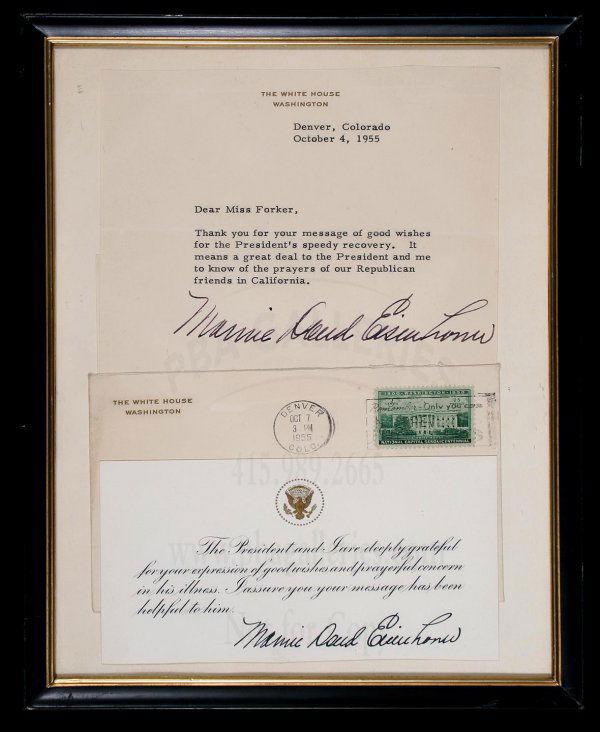 THE WHITE HOUSE
WASHINGTON
Denver, Colorado
October 4, 1955
Dear Miss Forker,
Thank you for your message of good wishes
for the President's speedy recovery. It
means a great deal to the President and me
to know of the prayers of our Republican
friends in California.
Mamie Doud Eisenhower
PBA GALLERIES
THE WHITE HOUSE
WASHINGTON
DENVER
OCT 7
3 PM
1955
COLO.
1800 · WASHINGTON · 1950
Remember · Only you can
NATIONAL CAPITAL SESQUICENTENNIAL
415.989.2665
The President and I are deeply grateful
for your expression of good wishes and prayerful concern
in his illness. I assure you your message has been
helpful to him.
Mamie Doud Eisenhower